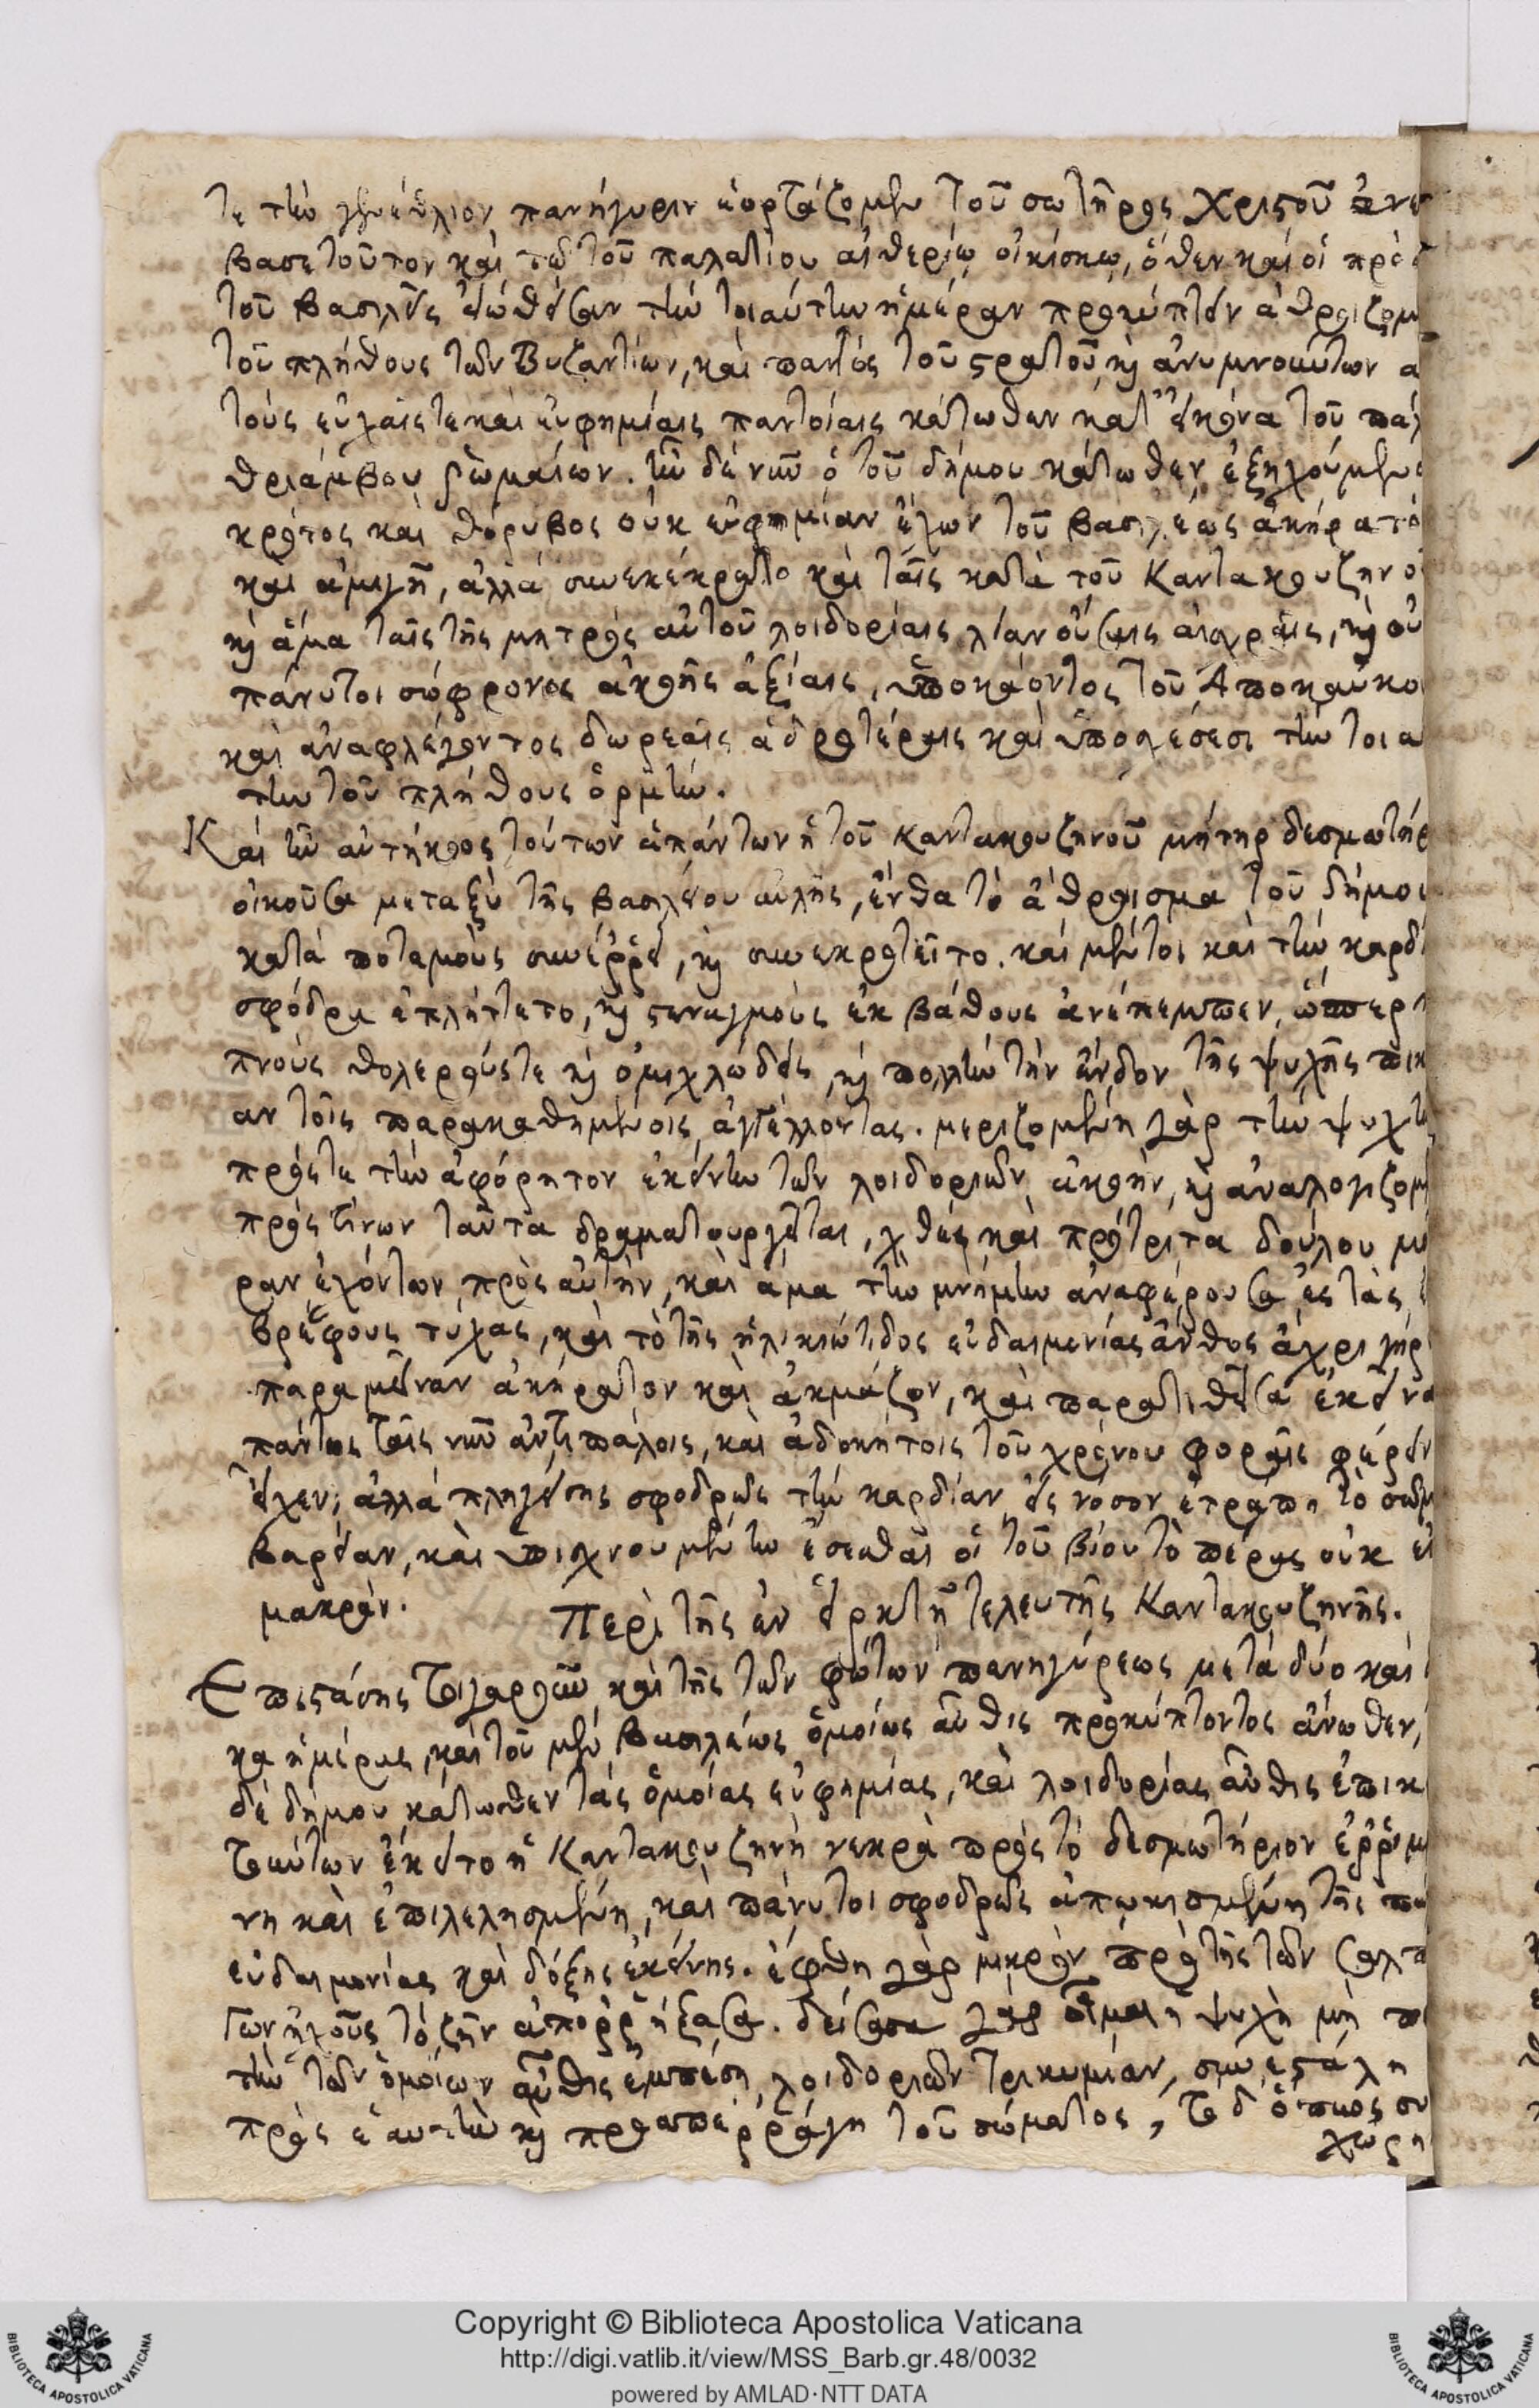 τε τὴν γενέθλιον πανήγυριν ἑορτάζομεν τοῦ σωτῆρος Χριστοῦ ἀνε
βασε τοῦτον καὶ τῷ τοῦ παλατίου αἰθερίῳ οἰκίσκῳ, ὅθεν καὶ οἱ πρὸ
τοῦ βασιλεῖς εἰώθεισαν τὴν τοιαύτην ἡμέραν προκύπτειν ἀθροιζομ
τοῦ πλήθους τῶν Βυζαντίων, καὶ παντὸς τοῦ στρατοῦ καὶ ἀνυμνούντων α
τοὺς εὐχαῖς τε καὶ εὐφημίαις παντοίαις κάτωθεν κατ' εἰκόνα τοῦ πάλ
θριάμβου ῥωμαίων. ἦν δὲ νῦν ὁ τοῦ δήμου κάτωθεν ἐξηχούμενος
κρότος καὶ θόρυβος οὐκ εὐφημίαν ἔχων τοῦ βασιλέως ἀκήρατό
καὶ ἀμιγῆ, ἀλλὰ συνεκέκρατο καὶ ταῖς κατὰ τοῦ Καντακουζηνο
καὶ ἅμα ταῖς τῆς μητρὸς αὐτοῦ λοιδορίαις λίαν οὔσαις αἰσχραῖς, καὶ οὐ
πάνυ τοι σώφρονος ἀκοῆς ἀξίαις, ὑποκάοντος τοῦ Ἀποκαύκου
καὶ ἀναφλέγοντος δωρεαῖς ἁδροτέραις καὶ ὑποσχέσεσι τὴν τοια
την τοῦ πλήθους ὁρμήν.
Καὶ ἦν αὐτήκοος τούτων ἁπάντων ἡ τοῦ καντακουζηνοῦ μήτηρ δεσμωτήρ
οἰκοῦσα μεταξὺ τῆς βασιλείου αὐλῆς, ἔνθα τὸ ἄθροισμα τοῦ δήμου
κατὰ ποταμοὺς συνέρρει, καὶ συνεκροτεῖτο. καὶ μέντοι καὶ τὴν καρδί
σφόδρα ἐπλήττετο, καὶ στεναγμοὺς ἐκ βάθους ἀνέπεμπεν, ὥσπερ
πνοὺς θολερούς τε καὶ ὀμιχλώδεις, καὶ πολλὴν τὴν ἔνδον τῆς ψυχῆς πικ
αν τοῖς παρακαθημένοις ἀγγέλλοντας. μεριζομένη γὰρ τὴν ψυχὴν
πρός τε τὴν ἀφόρητον ἐκείνην τῶν λοιδοριῶν ἀκοήν, καὶ ἀναλογιζομ
πρὸς τίνων ταῦτα δραματουργεῖται, χθὲς καὶ πρότριτα δούλου μοῖ
ραν ἐχόντων πρὸς αὐτήν, καὶ ἅμα τὴν μνήμην ἀναφέρουσα ἐς τὰς
βρέφους τύχας, καὶ τὸ τῆς ἡλικιώτιδος εὐδαιμονίας ἄνθος ἄχρι γήρ
παραμεῖναν ἀκήρατον καὶ ἀκμάζον, καὶ παρατιθεῖσα ἐκεῖνα
πάντως ταῖς νῦν ἀντιπάλοις, καὶ ἀδοκήτοις τοῦ χρόνου φοραῖς φέρειν
εἶχεν; ἀλλὰ πληγείσης σφοδρῶς τὴν καρδίαν εἰς νόσον ἐτράπη τὸ σῶμ
βαρεῖαν, καὶ ὑπισχνουμένην ἔσεσθαι οἱ τοῦ βίου τὸ πέρας οὐκ εἰ
μακράν.
Περὶ τῆς ἐν εἱρκτῇ τελευτῆς Καντακουζηνῆς.
Ἐπιστάσης τοιγαροῦν καὶ τῆς τῶν φώτων πανηγύρεως μετὰ δύο καὶ
κα ἡμέρας, καὶ τοῦ μὲν βασιλέως ὁμοίως αὖθις προκύπτοντος ἄνωθεν,
δὲ δήμου κάτωθεν τὰς ὁμοίας εὐφημίας, καὶ λοιδορίας αὖθις ἐπικ
τούντων ἔκειτο ἡ Καντακουζηνὴ νεκρὰ πρὸς τὸ δεσμωτήριον ἐρριμ
νη καὶ ἐπιλελησμένη, καὶ πάνυ τοι σφοδρῶς ἀπῳκισμένη τῆς πά
εὐδαιμονίας καὶ δόξης ἐκείνης. ἔφθη γὰρ μικρὸν πρὸ τῆς τῶν σαλπ
γων ἠχοῦς τὸ ζῆν ἀπορρήξασα. δείσασα γὰρ οἶμαι ἡ ψυχὴ μὴ π
τὴν τῶν ὁμοίων αὖθις ἐμπέσῃ λοιδοριῶν τρικυμίαν, συνεστάλη
πρὸς ἑαυτὴν καὶ προαπερράγη τοῦ σώματος, τὸ δ' ὅπως συ
χώρη
Copyright © Biblioteca Apostolica Vaticana
http://digi.vatlib.it/view/MSS_Barb.gr.48/0032
powered by AMLAD·NTT DATA
BIBLIOTECA APOSTOLICA VATICANA
BIBLIOTECA APOSTOLICA VATICANA